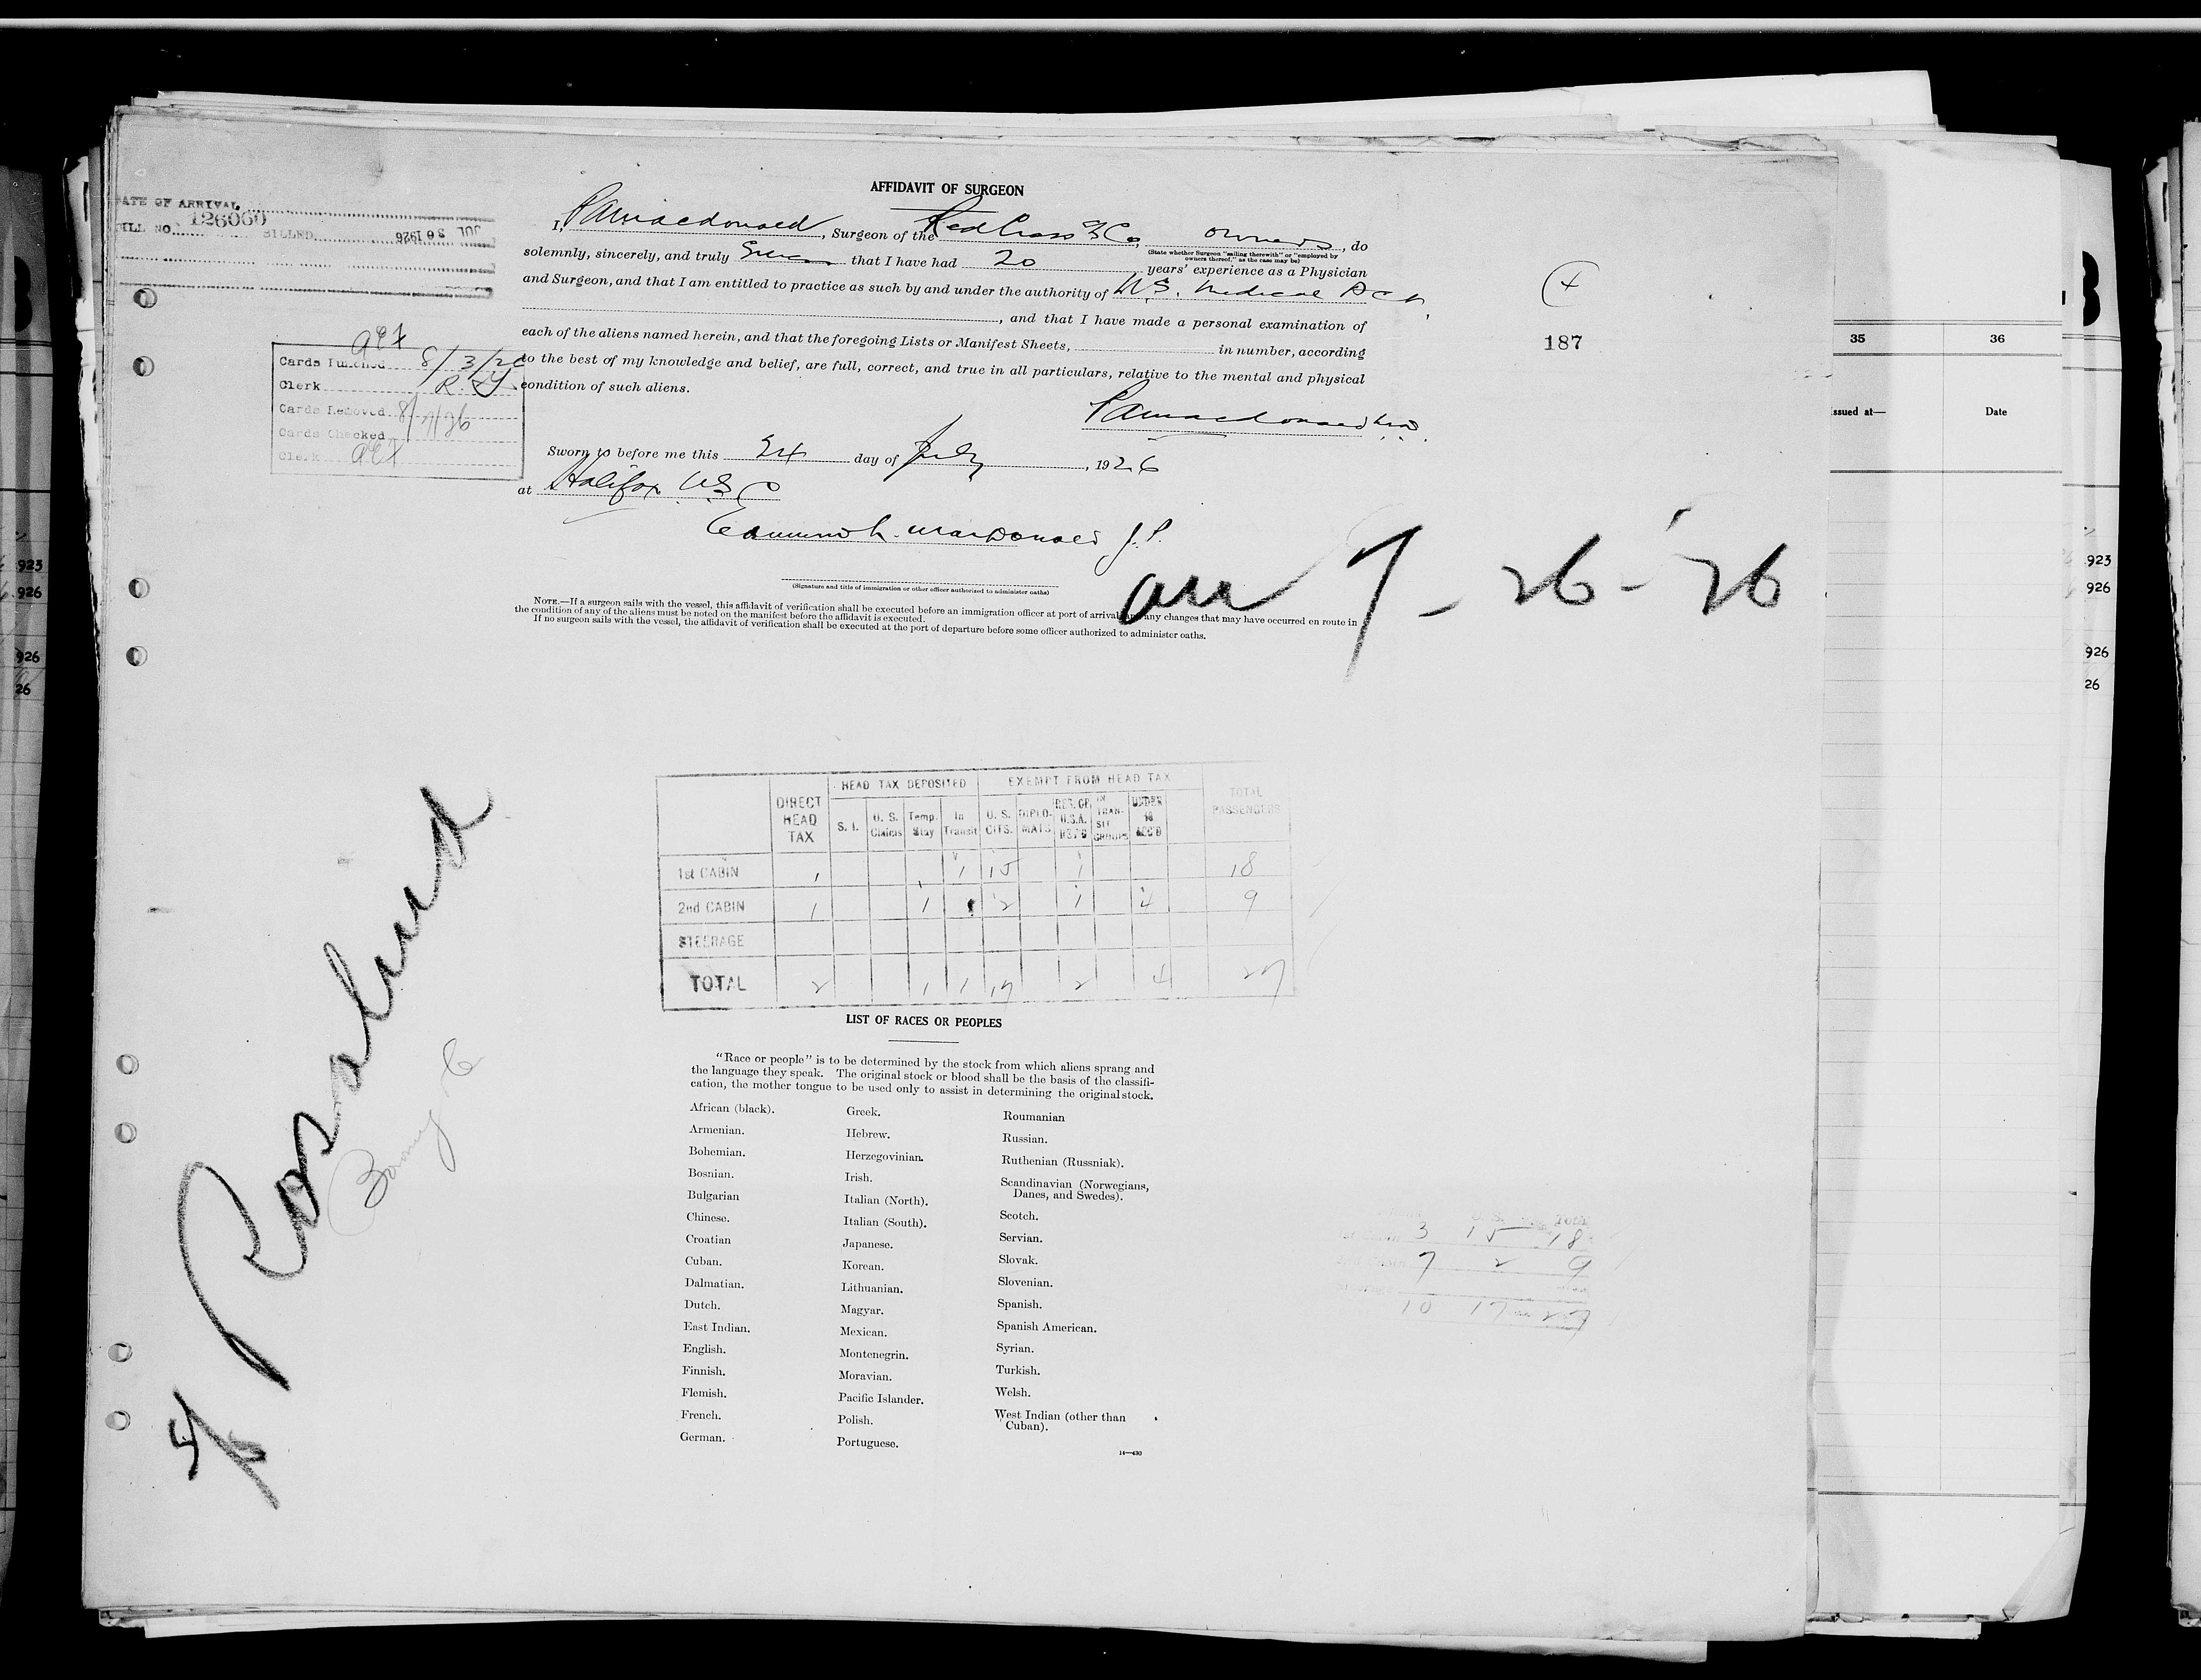 AFFIDAVIT OF SURGEON
DATE OF ARRIVAL
BILL NO. 126060 BILLED JUL 30 1926
I, P A Macdonald, Surgeon of the Red Cross owners, do
(State whether Surgeon "sailing therewith" or "employed by owners thereof," as the case may be)
solemnly, sincerely, and truly swear that I have had 20 years' experience as a Physician
and Surgeon, and that I am entitled to practice as such by and under the authority of N.S. Medical Act,
, and that I have made a personal examination of
each of the aliens named herein, and that the foregoing Lists or Manifest Sheets, in number, according
to the best of my knowledge and belief, are full, correct, and true in all particulars, relative to the mental and physical
condition of such aliens.
P A Macdonald M.D.
Sworn to before me this 24 day of July, 1926
at Halifax N.S.
MacDonald J.P.
(Signature and title of immigration or other officer authorized to administer oaths)
NOTE.—If a surgeon sails with the vessel, this affidavit of verification shall be executed before an immigration officer at port of arrival and any changes that may have occurred en route in
the condition of any of the aliens must be noted on the manifest before the affidavit is executed.
If no surgeon sails with the vessel, the affidavit of verification shall be executed at the port of departure before some officer authorized to administer oaths.
Cards Punched 8/3/26
Clerk
Cards Removed 8/7/26
Cards Checked
Clerk
187
35 36
issued at— Date
923
926
926
26
arr 7-26-'26
Rosalind
HEAD TAX DEPOSITED EXEMPT FROM HEAD TAX
DIRECT HEAD TAX S. I. U. S. Claims Temp. Stay In Transit U. S. CITS. DIPLO-MATS RES. OF U.S.A. IN TRAN-SIT GROUPS UNDER 16 ACC'D TOTAL PASSENGERS
1st CABIN 1 1 15 1 18
2nd CABIN 1 1 2 1 4 9
STEERAGE
TOTAL 2 1 1 17 2 4 27
LIST OF RACES OR PEOPLES
"Race or people" is to be determined by the stock from which aliens sprang and
the language they speak. The original stock or blood shall be the basis of the classifi-
cation, the mother tongue to be used only to assist in determining the original stock.
African (black).
Armenian.
Bohemian.
Bosnian.
Bulgarian
Chinese.
Croatian
Cuban.
Dalmatian.
Dutch.
East Indian.
English.
Finnish.
Flemish.
French.
German.
Greek.
Hebrew.
Herzegovinian.
Irish.
Italian (North).
Italian (South).
Japanese.
Korean.
Lithuanian.
Magyar.
Mexican.
Montenegrin.
Moravian.
Pacific Islander.
Polish.
Portuguese.
Roumanian
Russian.
Ruthenian (Russniak).
Scandinavian (Norwegians,
Danes, and Swedes).
Scotch.
Servian.
Slovak.
Slovenian.
Spanish.
Spanish American.
Syrian.
Turkish.
Welsh.
West Indian (other than
Cuban).
14—430
U.S. Total
3 15 18
7 2 9
10 17 27